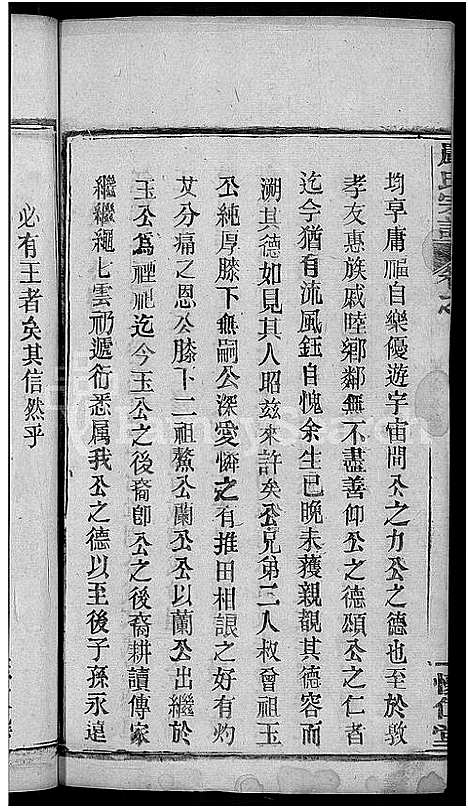 均享庸福自樂優遊宇宙間公之力公之德也至於敦
孝友惠族戚睦鄉鄰無不盡善仰公之德頌公之仁者
迄今猶有流風鈺自愧余生已晚未獲親覩其德容而
溯其德如見其人昭茲來許矣公兄弟三人叔會祖玉
公純厚膝下無嗣公深愛憐之有推田相讓之好有灼
艾分痛之恩公膝下二祖鰲公蘭公公以蘭公出繼於
玉公為禋祀迄今玉公之後裔卽公之後裔耕讀傳家
繼繼繩七雲礽遞衍悉属我公之德以至後子孫永遠
必有王者矣其信然乎